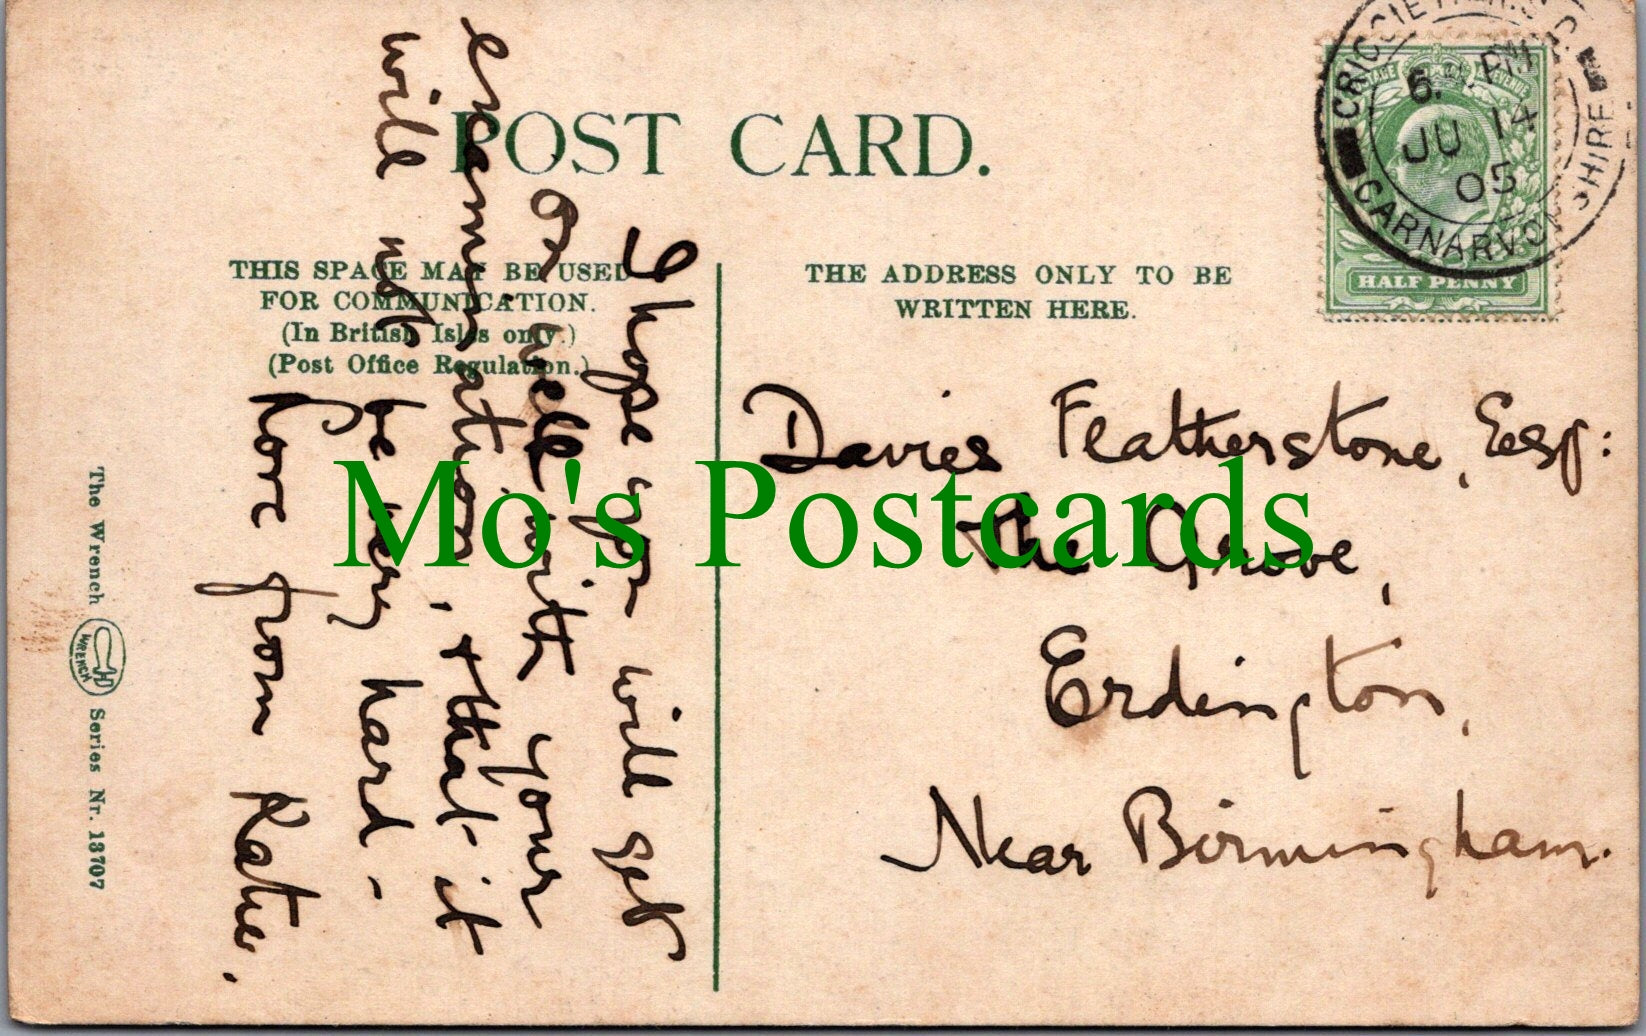 POST CARD.
THIS SPACE MAY BE USED
FOR COMMUNICATION.
(In British Isles only.)
(Post Office Regulation.)
THE ADDRESS ONLY TO BE
WRITTEN HERE.
CRICCIETH R.S.O.
CARNARVONSHIRE
6. PM
JU 14
05
POSTAGE & REVENUE
HALF PENNY
I hope you will get
on well with your
examination, & that it
will not be very hard -
Love from Katie.
Davies Featherstone, Esq:
The Grove,
Erdington,
Near Birmingham.
The Wrench
WRENCH
Series Nr. 18707
Mo's Postcards